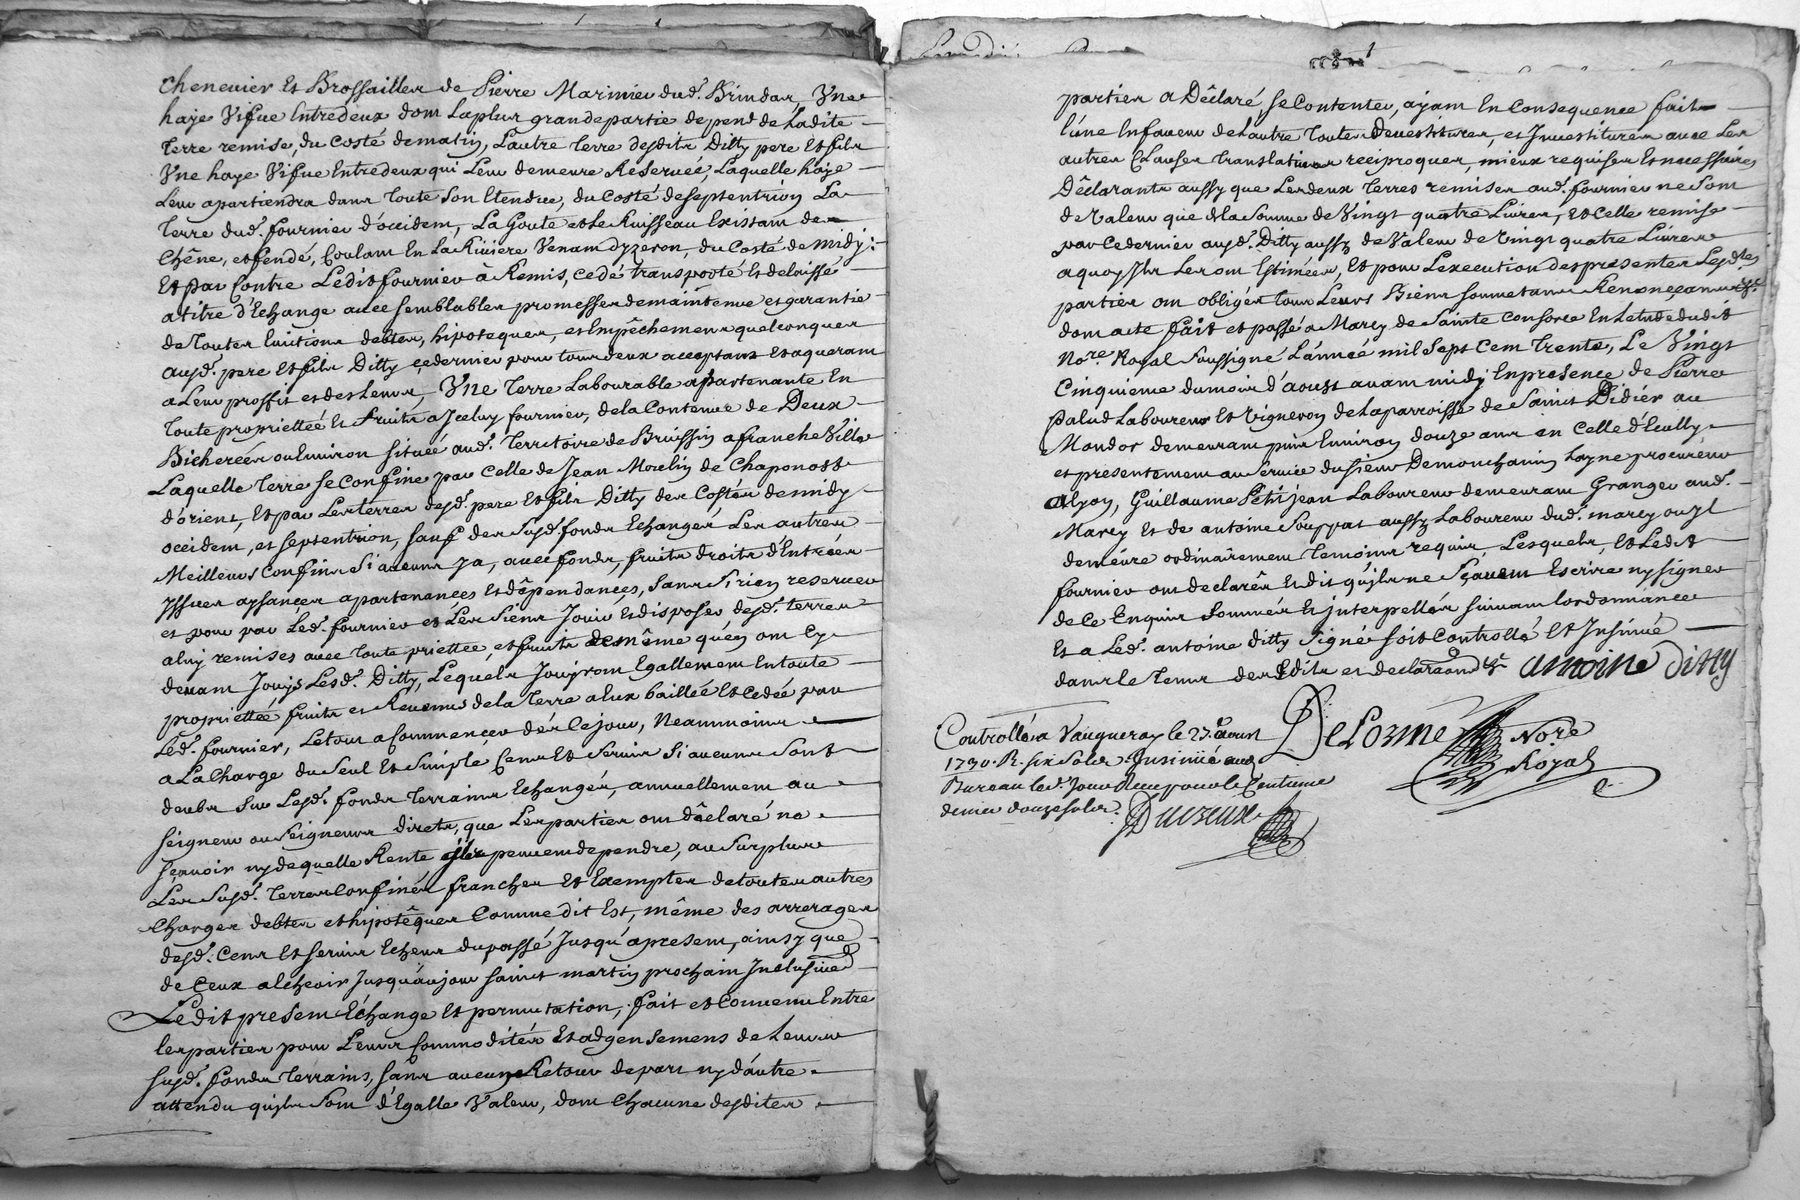 Chenevier et Brossailles de Pierre Marinier dud. Brindas, Une
haye Vifue Entredeux dont la plus grande partie depend de Ladite
Terre remise, du costé de matin, L'autre Terre desdits Ditty pere et fils
Vne haye Vifue Entredeux qui Leur demeure Reservée, Laquelle haye
Leur apartiendra dans Toute Son Etendue, du costé de septentrion La
Terre dud. fournier d'occident, La Goute et le Ruisseau Existant de
Chêne, et fendé, Coulant En La Riviere Venant d'yzeron, du Costé de midy:
Et par Contre Ledit fournier à Remis, cedé transporté et delaissé
a titre d'Echange avec semblables promesses de maintenue et garantie
de Toutes Evictions debtes, hipoteques, et Empêchemens quelconques
auxd. pere et fils Ditty ce dernier pour tous deux acceptant et aquerant
a Leur proffit et des Leurs, Vne Terre Labourable apartenante En
Toute proprietteé et fruits a Jceluy fournier, de la Contenue de Deux
Bicherées ou Environ située aud. Territoire de Brüissin a franche Ville
Laquelle Terre se Confine par Celle de Jean Moulin de Chaponost
d'orient, Et par Les terres desd. pere Et fils Ditty des Costés de midy
occident, et septentrion, sauf des Susd. fonds Echangés Les autres
Meilleurs Confins Si aucuns ya, avec fonds, fruits droits d'Entrées
yssues aysances apartenances et dépendances, Sans Si rien reserver
et pour par Led. fournier et Les Siens Jouir et disposer desd. terres
a luy remises avec Toute priettee, et fruits de même qu'en ont Cy
devant Jouÿs Lesd. Ditty, Lequels Jouyront Egallement En toute
propriettée fruits et Revenus de la Terre a Eux baillée et Cedée par
Led. fournier, Le tout a Commencer dès Ce jour, Neammoins
a La Charge du Seul Et Simple Cens Et Servis Si aucuns Sont
deubs Sur Lesd. fonds Terrains Echangés, annuellement au
seigneur ou Seigneurs directs, que Les parties ont déclaré ne
sçavoir ny de quelle Rente ils peuvent dependre, au Surplus
Les Susd. Terres Confinés franches Et Exemptes de toutes autres
Charges debtes et hipotêques Comme dit Est, même des arrerages
desd. Cens et servis Echeus du passé Jusqu'a present, ainsy que
de Ceux a Echeoir Jusqu'au jour saint martin prochain Jnclusived
Ledit present Echange et permutation, fait et Convenu Entre
les parties pour Leurs Commodités Et adgensemens de Leurs
susd. fonds Terrains, sans aucun Retour de part ny d'autre
attendu qu'ils Sont d'Egalle Valeur, dont Chacune desdites
parties a Déclaré se Contenter, ayant En Consequence fait
l'une En faveur de L'autre Toutes Devestitures, et Jnvestitures avec Les
autres Clauses Translatives reciproques, mieux requises Et necessaires
Déclarants aussy que Les deux Terres remises aud. fournier ne Sont
de Valeur que de la Somme de Vingt quatre Livres, et celle remise
par ce dernier auxd. Ditty aussy de Valeur de Vingt quatre Livres
a quoy Jls Les ont Estimées, Et pour L'execution des presentes Lesdtes
parties ont obligés Tous Leurs Biens soumetants Renonçants &c
dont acte fait et passé a Marcy de Sainte Consorce En L'etude dudit
Nore Royal Soussigné L'année mil Sept Cent Trente, Le Vingt
Cinquieme du mois d'aoust avant midy En presence de Pierre
Palud Laboureur Et Vigneron de La parroisse de Saint Didier au
Mondor demeurant puis Environ douze ans en Celle d'Ecully
et presentement au Service du Sieur Demonchanin Layne procureur
a Lyon, Guillaume Petitjean Laboureur demeurant Granger aud.
Marcy Et de antoine Souppat aussy Laboureur dud. marcy ou jl
demeure ordinairement Temoins requis, Lesquels, Et Ledit
fournier ont declarés Et dit qu'ils ne Sçavent Escrire ny signer
de Ce Enquis Sommés Et jnterpellés suivant lordonnance
Et a Led. antoine ditty Signé soit Controllé Et Jnsinué
dans le Tems des Edits et declarations &c antoine ditty
Controllé a Vaugneray le 27. aoust
1730. R. six Sols Jnsinué aud
Bureau led. Jour Reçu pour le Centieme
denier douze sols.
DeLorme Nore
Royal